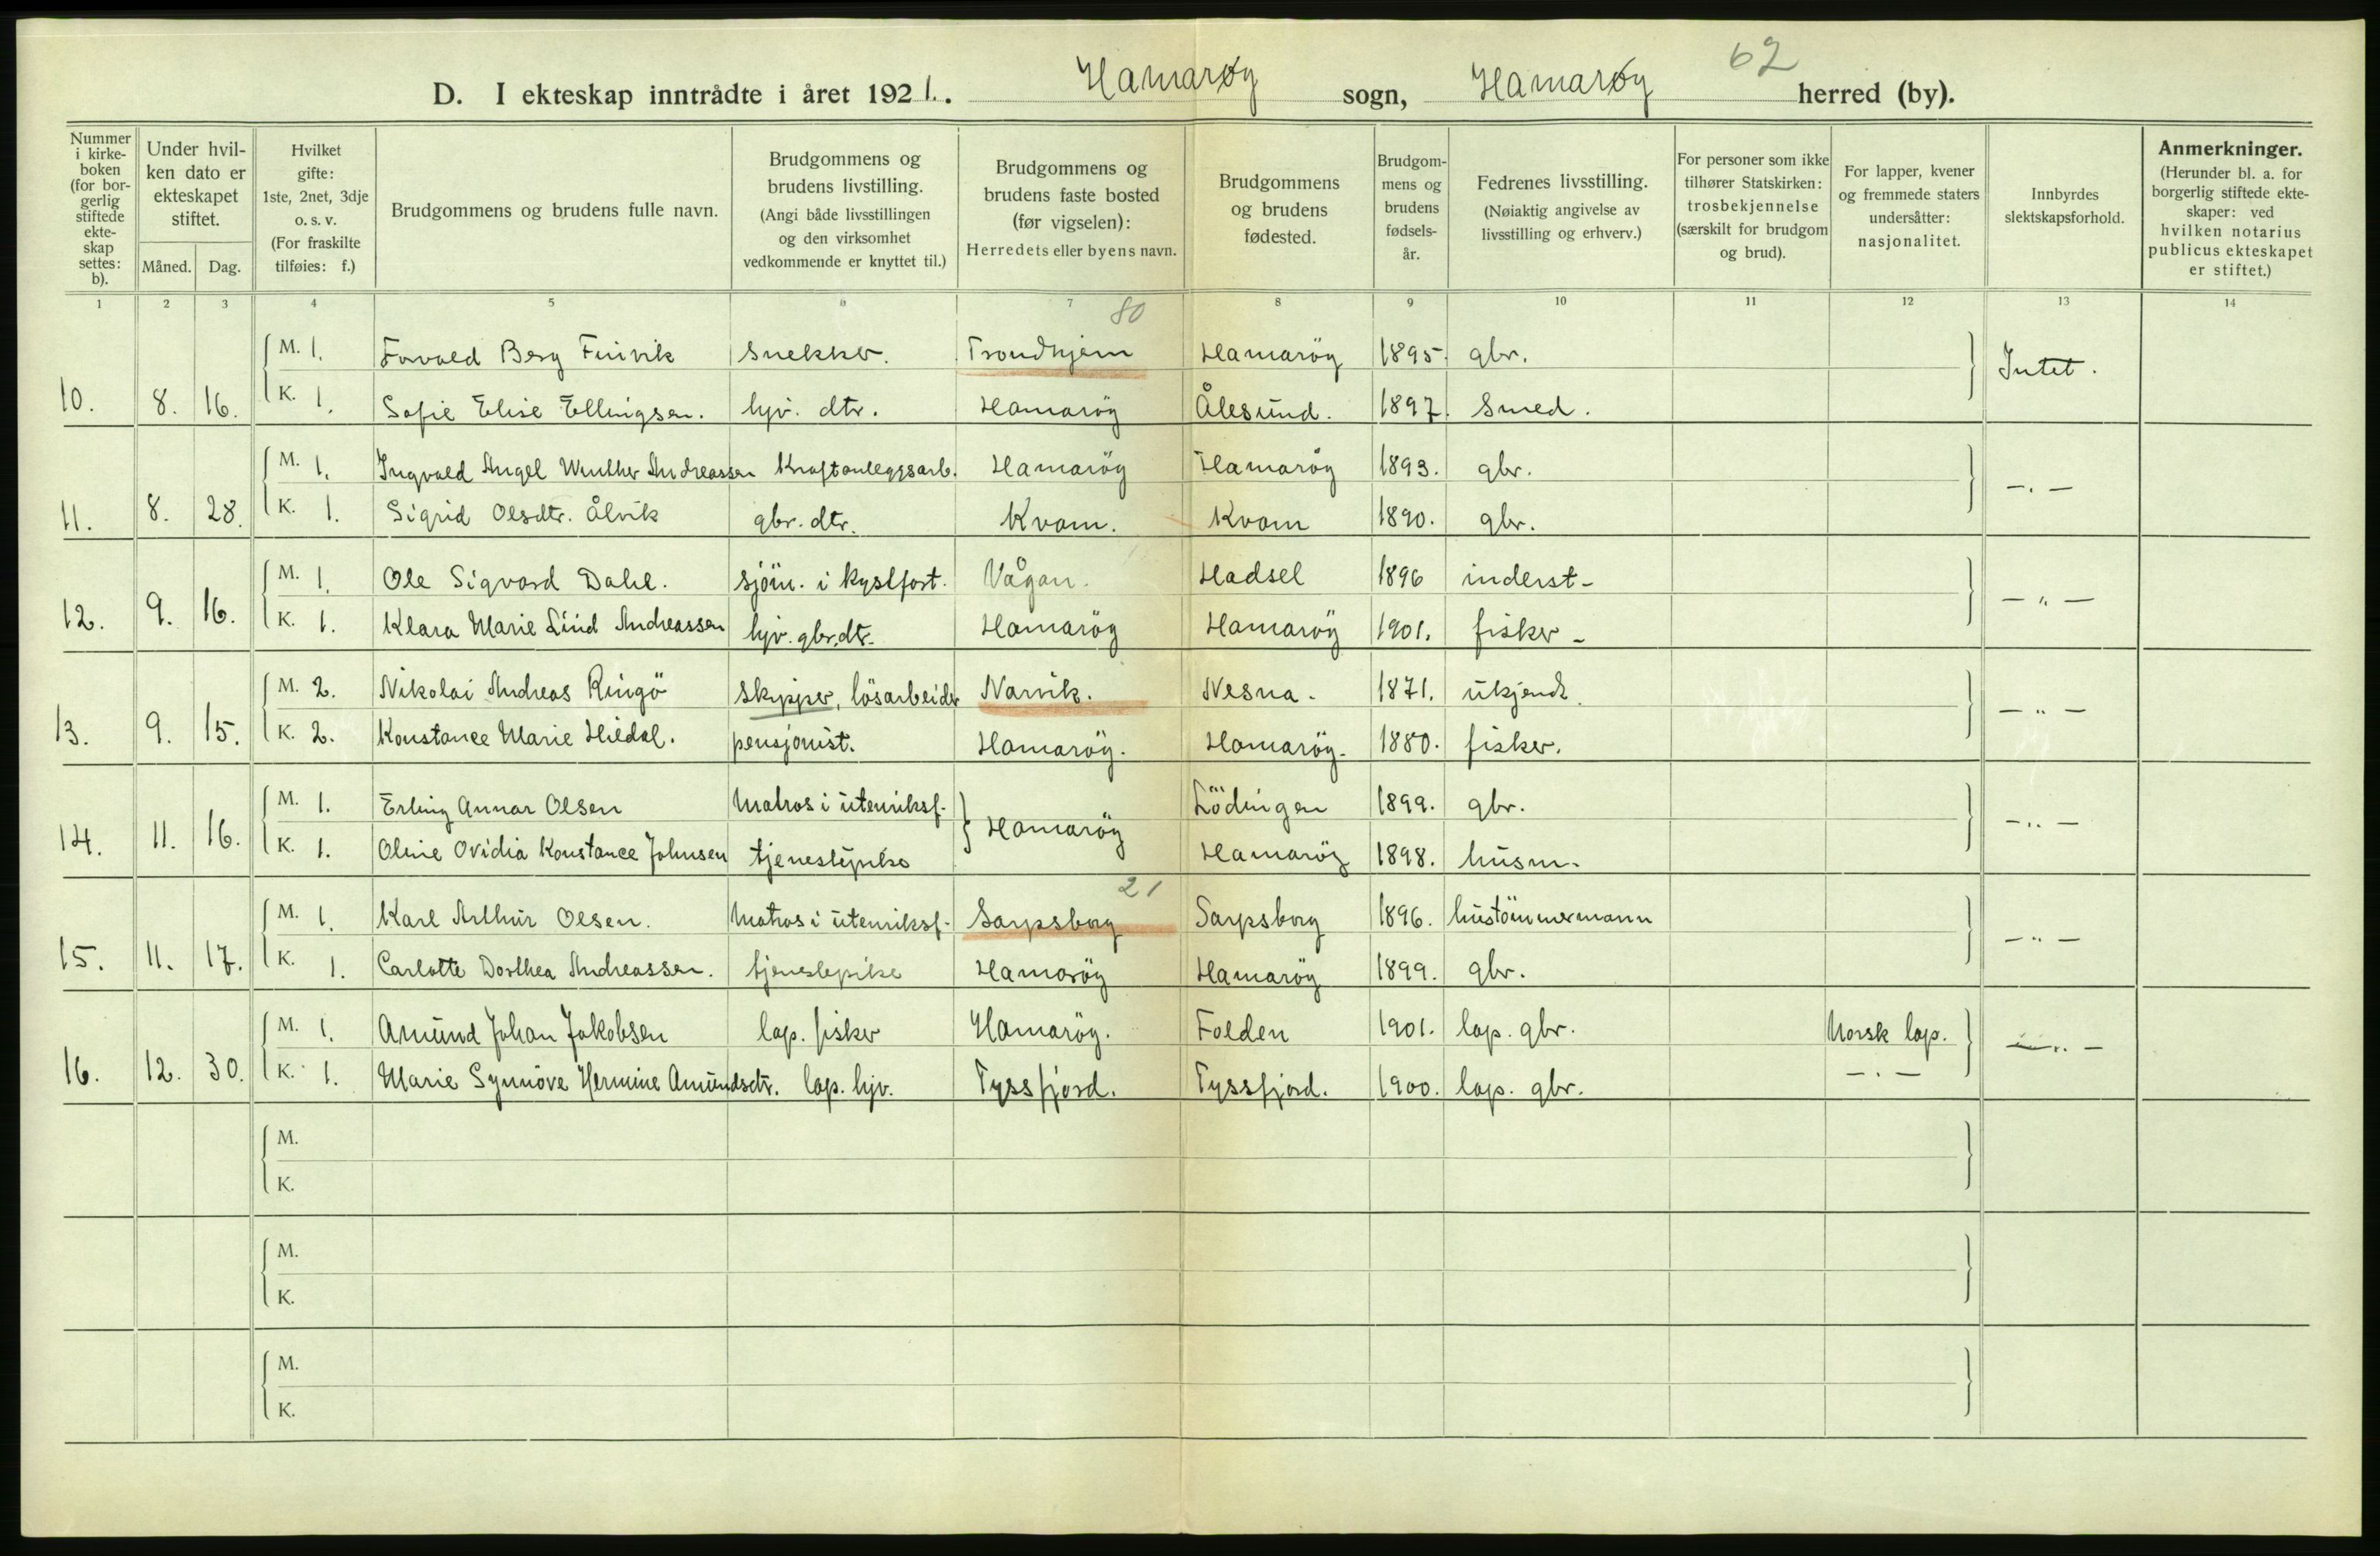 62
D. I ekteskap inntrådte i året 1921. Hamarøy sogn, Hamarøy herred (by).
Nummer i kirkeboken (for borgerlig stiftede ekteskap settes: b).
Under hvilken dato er ekteskapet stiftet.
Måned. Dag.
Hvilket gifte: 1ste, 2net, 3dje o. s. v. (For fraskilte tilføies: f.)
Brudgommens og brudens fulle navn.
Brudgommens og brudens livstilling. (Angi både livsstillingen og den virksomhet vedkommende er knyttet til.)
Brudgommens og brudens faste bosted (før vigselen): Herredets eller byens navn.
Brudgommens og brudens fødested.
Brudgommens og brudens fødselsår.
Fedrenes livsstilling. (Nøiaktig angivelse av livsstilling og erhverv.)
For personer som ikke tilhører Statskirken: trosbekjennelse (særskilt for brudgom og brud).
For lapper, kvener og fremmede staters undersåtter: nasjonalitet.
Innbyrdes slektskapsforhold.
Anmerkninger. (Herunder bl. a. for borgerlig stiftede ekteskaper: ved hvilken notarius publicus ekteskapet er stiftet.)
1 2 3 4 5 6 7 8 9 10 11 12 13 14
80
M. 1. Berg Finvik Snekker. Trondhjem Hamaröy 1895. gbr. Intet.
10. 8. 16. K. 1. Sofie Elise Ellingsen. hjv. dtr. Hamaröy Ålesund. 1897. Smed.
M. 1. Ingvald Angel Winther Andreassen Kraftanleggsarb. Hamaröy Hamaröy 1893. gbr. -.-
11. 8. 28. K. 1. Sigrid Olsdtr. Ålvik gbr. dtr. Kvam. Kvam 1890. gbr.
M. 1. Ole Sigvard Dahl. sjöm. i kystfart. Vågan. Hadsel 1896 inderst - - " -
12. 9. 16. K. 1. Klara Marie Lind Andreassen hjv. gbr.dtr. Hamaröy Hamaröy 1901. fisker -
M. 2. Nikolai Andreas Ringö Skipper, lösarbeider Narvik. Nesna. 1871. ukjendt. - " -
13. 9. 15. K. 2. Konstance Marie Hildal. pensjonist. Hamaröy. Hamaröy. 1880. fisker.
M. 1. Erling Annar Olsen Matros i utenriksf. Hamaröy Lödingen 1899. gbr. - " -
14. 11. 16. K. 1. Oline Ovidia Konstance Johnsen tjenestepike Hamaröy 1898. husm.
21
M. 1. Karl Arthur Olsen. Matros i utenriksf. Sarpsborg Sarpsborg 1896. hustömmermann - " -
15. 11. 17. K. 1. Carlotte Dorthea Andreassen. tjenestepike Hamaröy Hamaröy 1899. gbr.
M. 1. Amund Johan Jakobsen lap. fisker Hamaröy. Folden 1901. lap. gbr. Norsk lap. - " -
16. 12. 30. K. 1. Marie Synnöve Hermine Amundsdtr. lap. hjv. Tyssfjord. Tyssfjord. 1900. lap. gbr. -.-
M.
K.
M.
K.
M.
K.